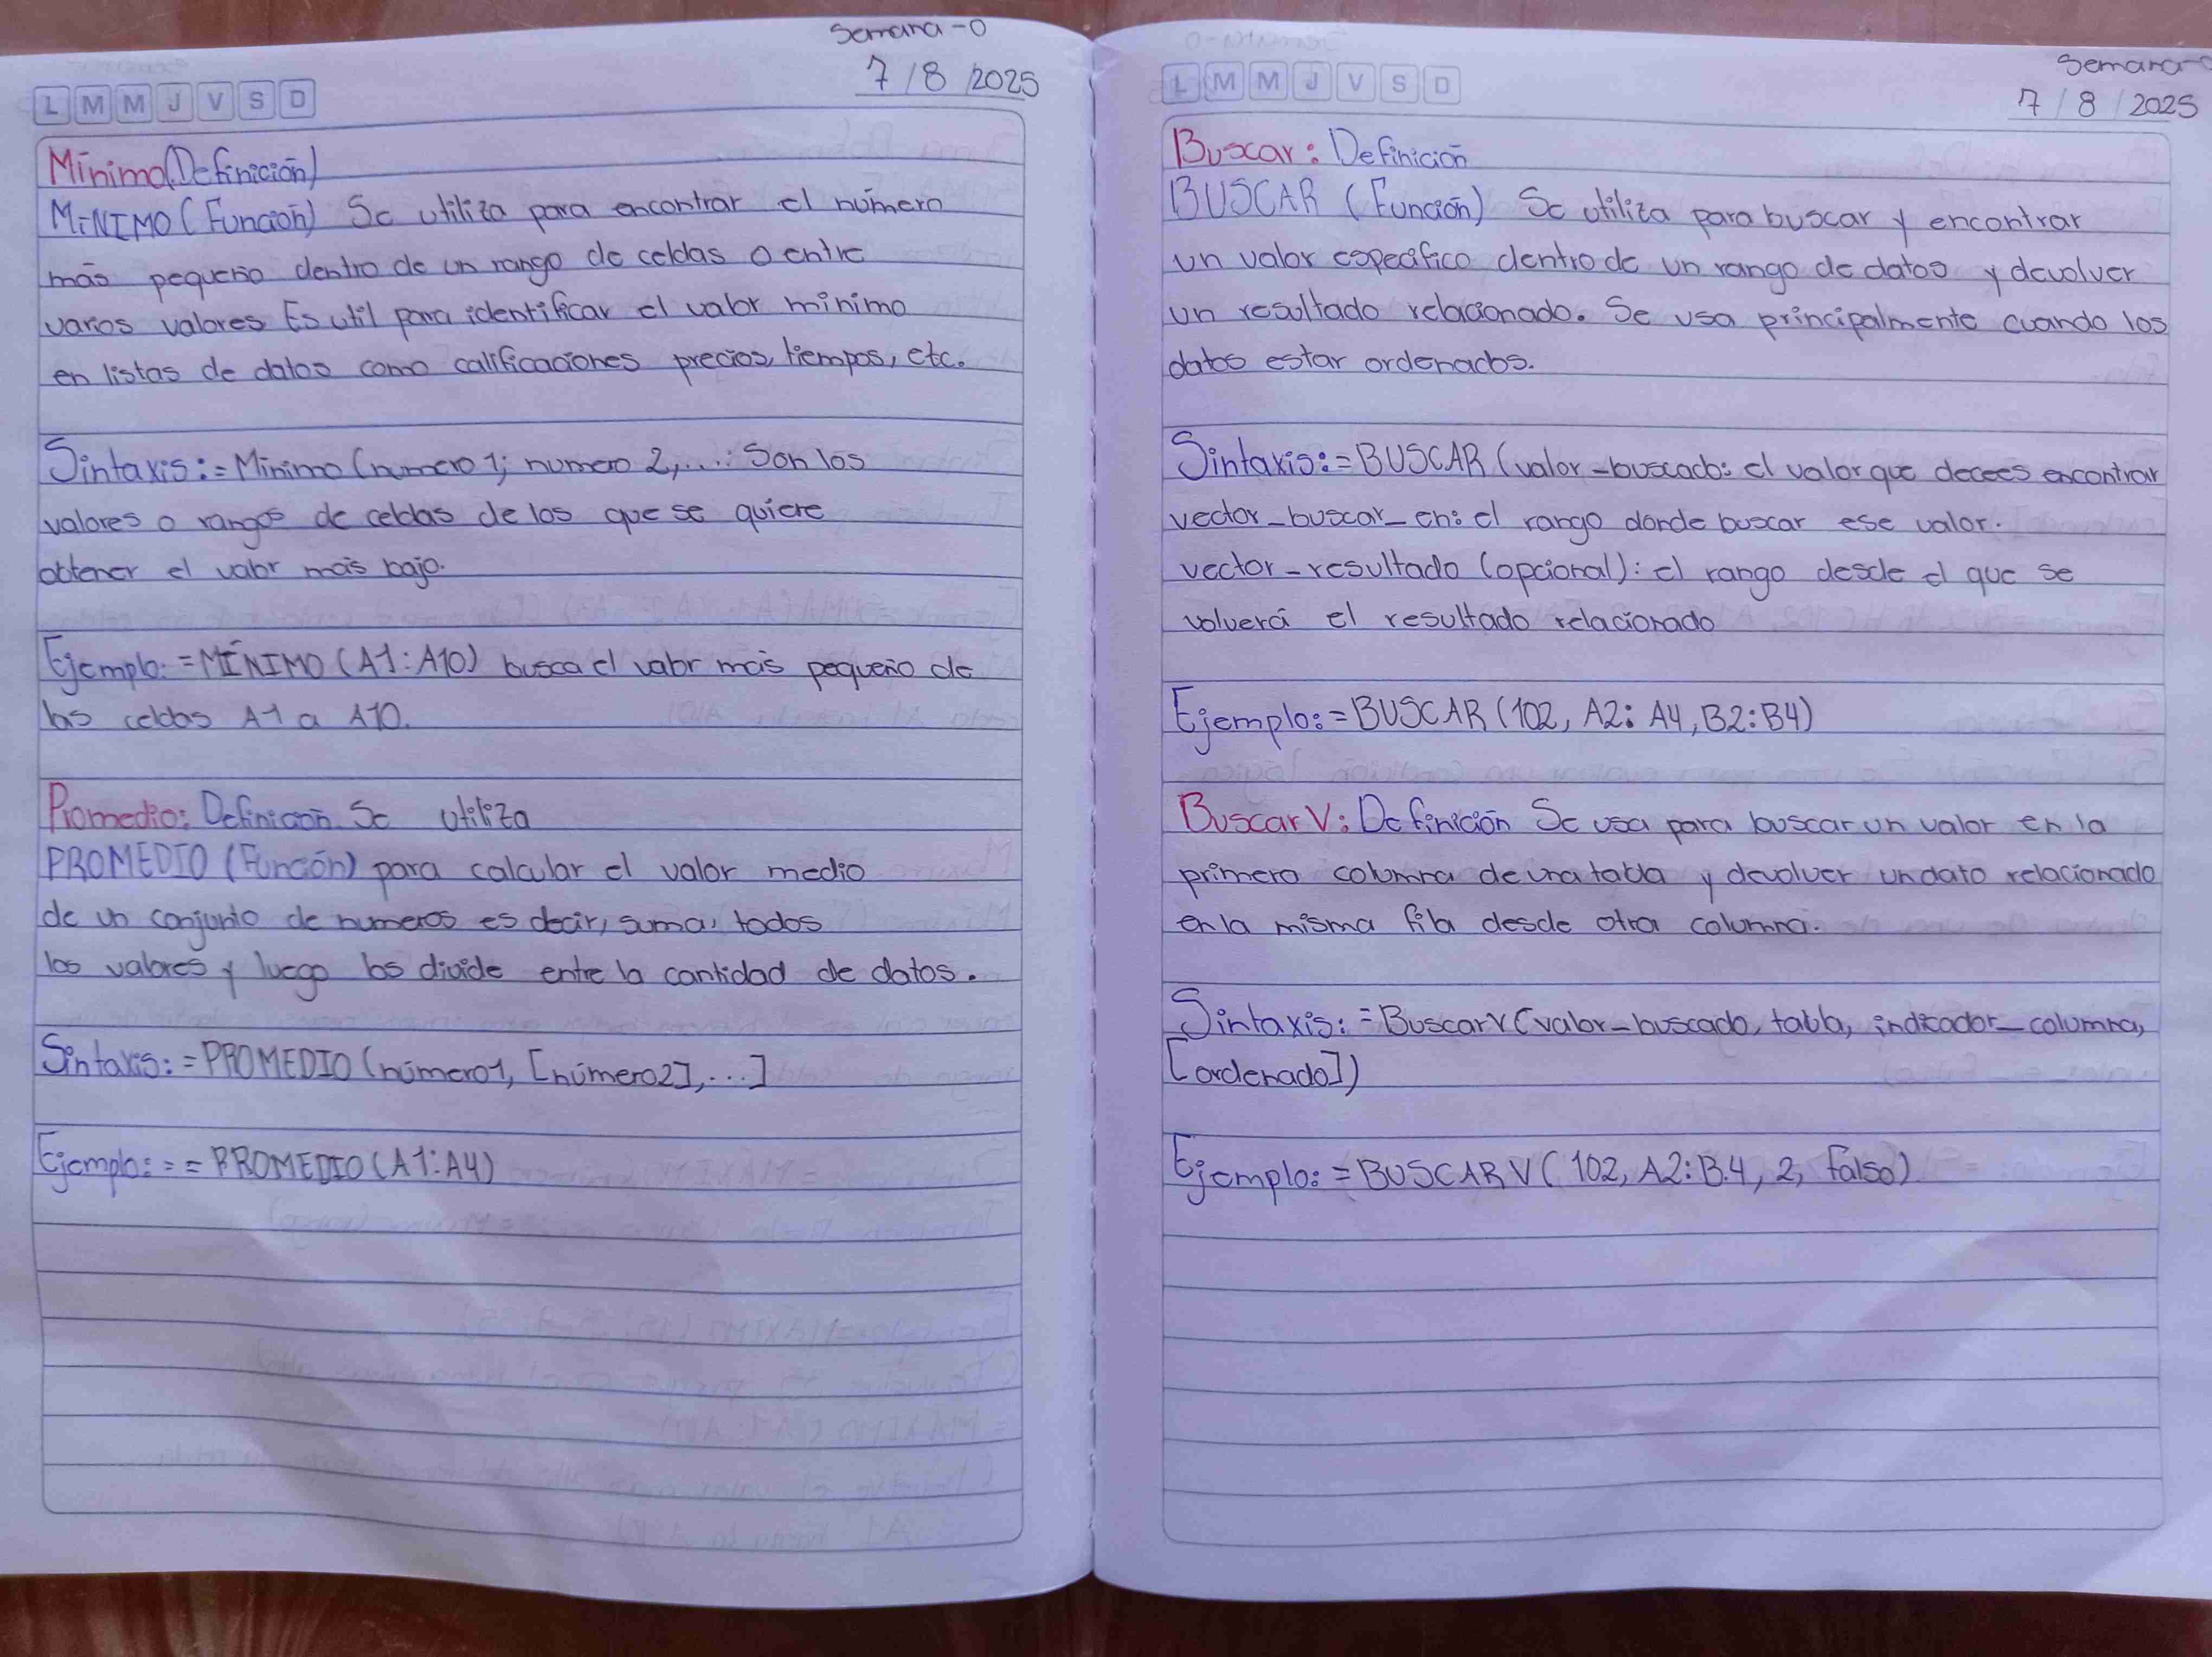 Semana-0
7/8/2025
L M M J V S D
Mínimo(Definición)
MíNIMO (Función) Se utiliza para encontrar el número
más pequeño dentro de un rango de celdas o entre
varios valores Es util para identificar el valor minimo
en listas de datos como calificaciones precios, tiempos, etc.
Sintaxis:=Minimo (numero 1; numero 2,...: Son los
valores o rangos de celdas de los que se quiere
obtener el valor más bajo.
Ejemplo: =MÍNIMO (A1:A10) busca el valor más pequeño de
las celdas A1 a A10.
Promedio: Definición Se utiliza
PROMEDIO (Función) para calcular el valor medio
de un conjunto de numeros es decir, suma, todos
los valores y luego los divide entre la cantidad de datos.
Sintaxis: =PROMEDIO (número1, [número2],...]
Ejemplo: = = PROMEDIO (A1:A4)
Semana-0
7/8/2025
L M M J V S D
Buscar: Definición
BUSCAR (Función) Se utiliza para buscar y encontrar
un valor especifico dentro de un rango de datos y devolver
un resultado relacionado. Se usa principalmente cuando los
datos estar ordenados.
Sintaxis:=BUSCAR (valor-buscado: el valor que decees encontrar
vector_buscar_en: el rango donde buscar ese valor.
vector-resultado (opcional): el rango desde el que se
volverá el resultado relacionado
Ejemplo: =BUSCAR (102, A2: A4, B2:B4)
BuscarV: Definición Se usa para buscar un valor en la
primera columna de una tabla y devolver un dato relacionado
en la misma fila desde otra columna.
Sintaxis: =BuscarV (valor_buscado, tabla, indicador_columna,
[ordenado])
Ejemplo: =BUSCARV (102, A2:B.4, 2, falso)